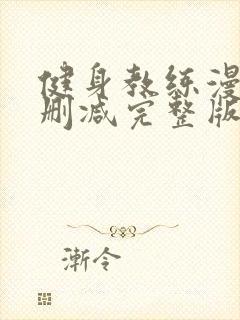 健身教练漫
删减完整版
渐令